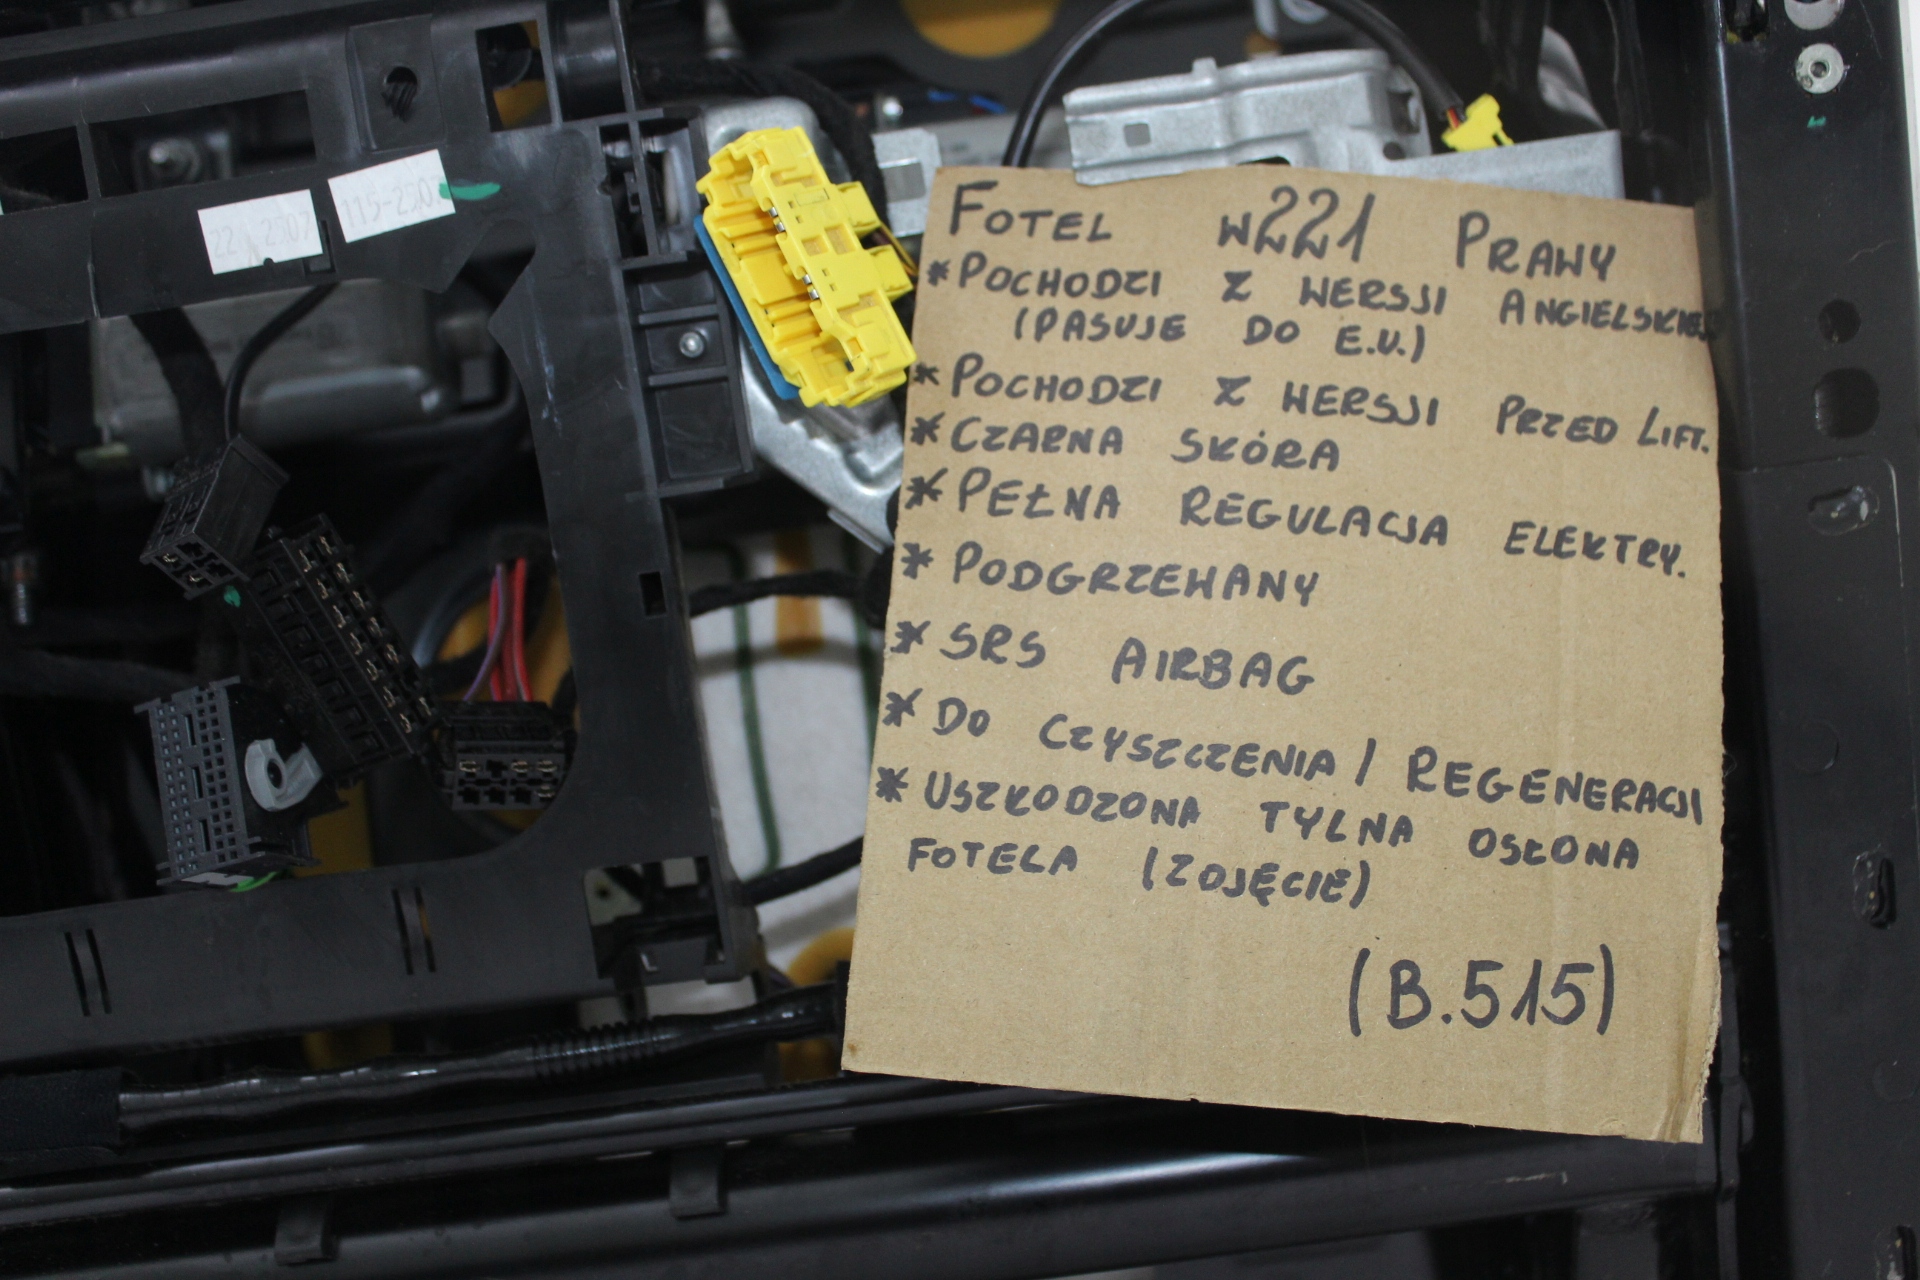 115-2502
FOTEL W221 PRAWY
* POCHODZI Z WERSJI ANGIELSKIEJ
(PASUJE DO E.U.)
* POCHODZI Z WERSJI PRZED LIFT.
* CZARNA SKÓRA
* PEŁNA REGULACJA ELEKTRY.
* PODGRZEWANY
* SRS AIRBAG
* DO CZYSZCZENIA / REGENERACJI
* USZKODZONA TYLNA OSŁONA
FOTELA (ZDJĘCIE)
(B.515)